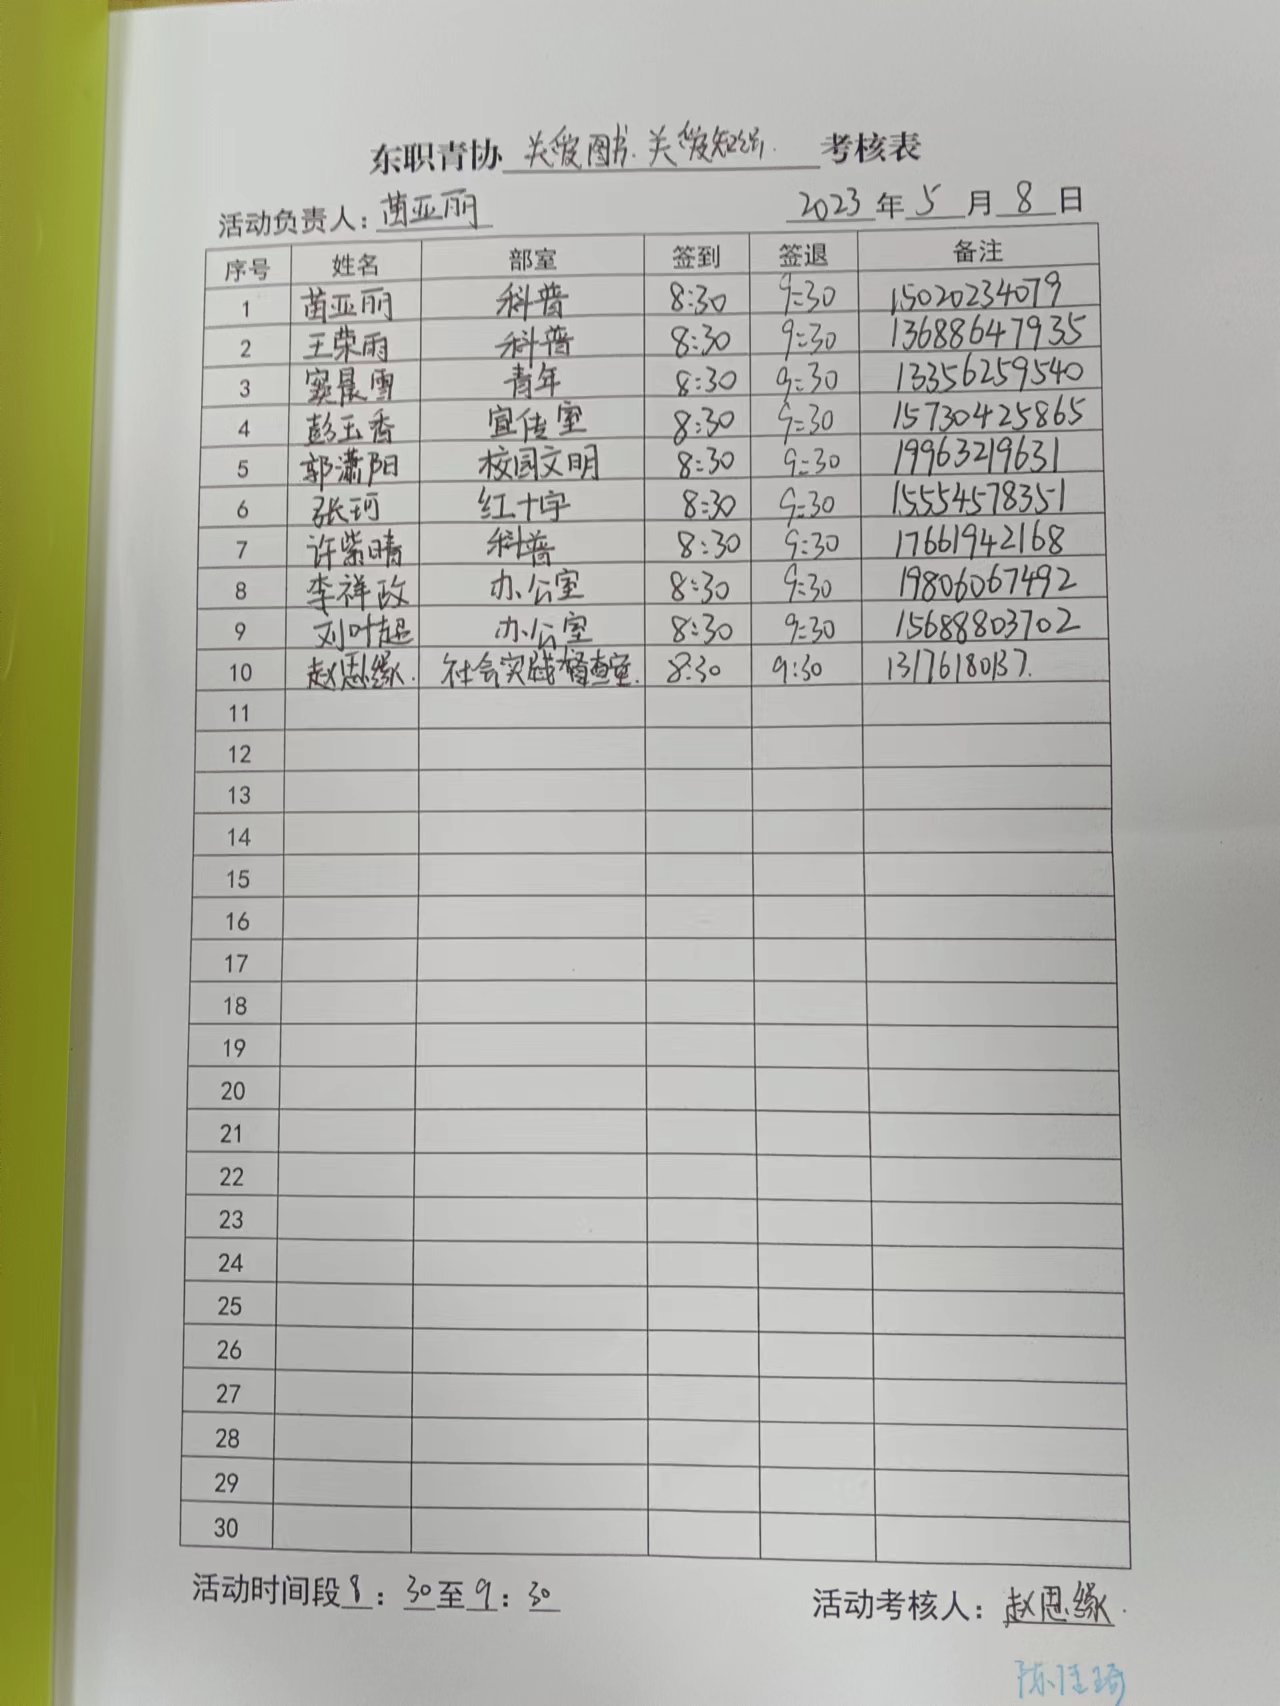 东职青协 关爱图书.关爱知识. 考核表
活动负责人：苗亚丽 2023 年 5 月 8 日
序号 姓名 部室 签到 签退 备注
1 苗亚丽 科普 8:30 9:30 15020234079
2 王荣雨 科普 8:30 9:30 13688647935
3 窦晨雪 青年 8:30 9:30 13356259540
4 彭玉香 宣传室 8:30 9:30 15730425865
5 郭潇阳 校园文明 8:30 9:30 19963219631
6 张珂 红十字 8:30 9:30 15554578351
7 许紫晴 科普 8:30 9:30 17661942168
8 李祥政 办公室 8:30 9:30 19806067492
9 刘叶超 办公室 8:30 9:30 15688803702
10 赵思缘. 社会实践督查室. 8:30 9:30 13176180137.
11
12
13
14
15
16
17
18
19
20
21
22
23
24
25
26
27
28
29
30
活动时间段 8：30 至 9：30 活动考核人：赵思缘.
陈佳琦